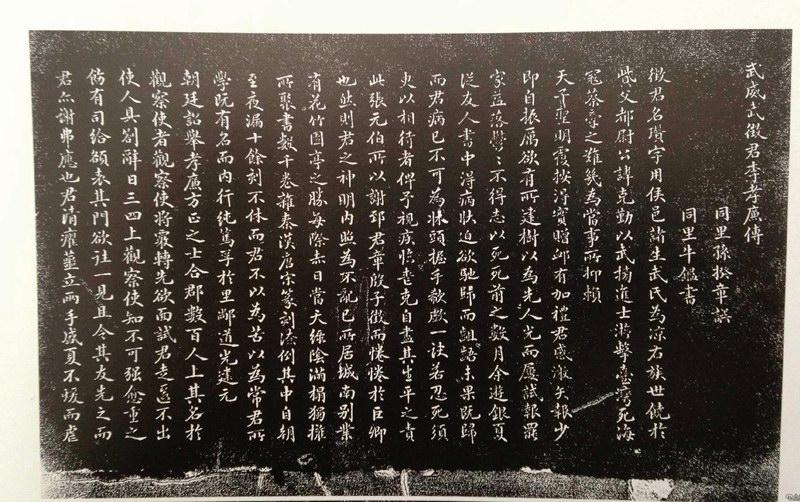 武威武徵君李孝廉傳
同里孫揆章譔
同里牛鑑書
徵君名瓚字用侯邑諸生武氏為涼右族世饒於
貲父都尉公諱克勤以武揚進士游擊臺灣死海
寇蔡牽之難幾為當事所抑賴
天子聖明覆按得實贈卹有加禮君感激矢報少
即自振厲欲有所建樹以為先人光而屢試報罷
家益落鬱鬱不得志以死死前之數月余遊銀夏
從友人書中得病狀迫欲馳歸而齟齬未果既歸
而君病已不可為牀頭握手欷歔一訣若忍死須
臾以相待者俾予視疾臨喪克自盡其生平之責
此張元伯所以謝郅君章殷子徵而惓惓於巨卿
也然則君之神明內照為不訛已所居城南別業
有花竹園亭之勝每除夫日當天綠陰滿榻獨擁
所聚書數千卷雜秦漢唐宋篆刻法例其中自朝
至夜漏十餘刻不休而君不以為苦以為常君所
學既有名而內行純篤孚於里鄰道光建元
朝廷詔舉孝廉方正之士合郡數百人上其名於
觀察使者觀察使將覈轉先欲面試君走匿不出
使人具劄辭日三四上觀察使知不可强愈重之
飭有司給額表其門欲往一見且令其友先之而
君亦謝弗應也君清癯立兩手盛夏不煖而虐